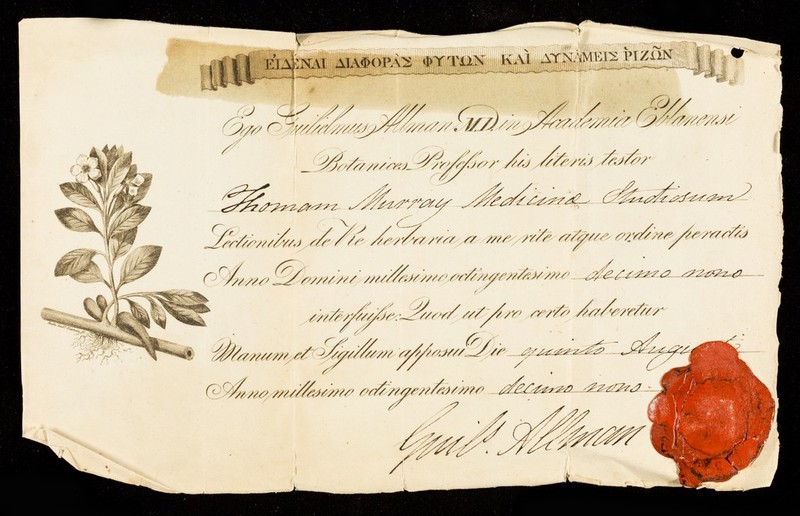 ΕἸΔΕΝΑΙ ΔΙΑΦΟΡᾺΣ ΦΥΤΩΝ ΚΑῚ ΔΥΝΆΜΕΙΣ ῬΙΖΩ͂Ν
Ego Gulielmus Allman M.D. in Academia Eblanensi
Botanices Professor his literis testor
Thomam Murray Medicinæ Studiosum
Lectionibus de Re herbaria a me rite atque ordine peractis
Anno Domini millesimo octingentesimo decimo nono
interfuisse: Quod ut pro certo haberetur
Manum et Sigillum apposui Die quinto Augusti
Anno millesimo octingentesimo decimo nono
Guils. Allman